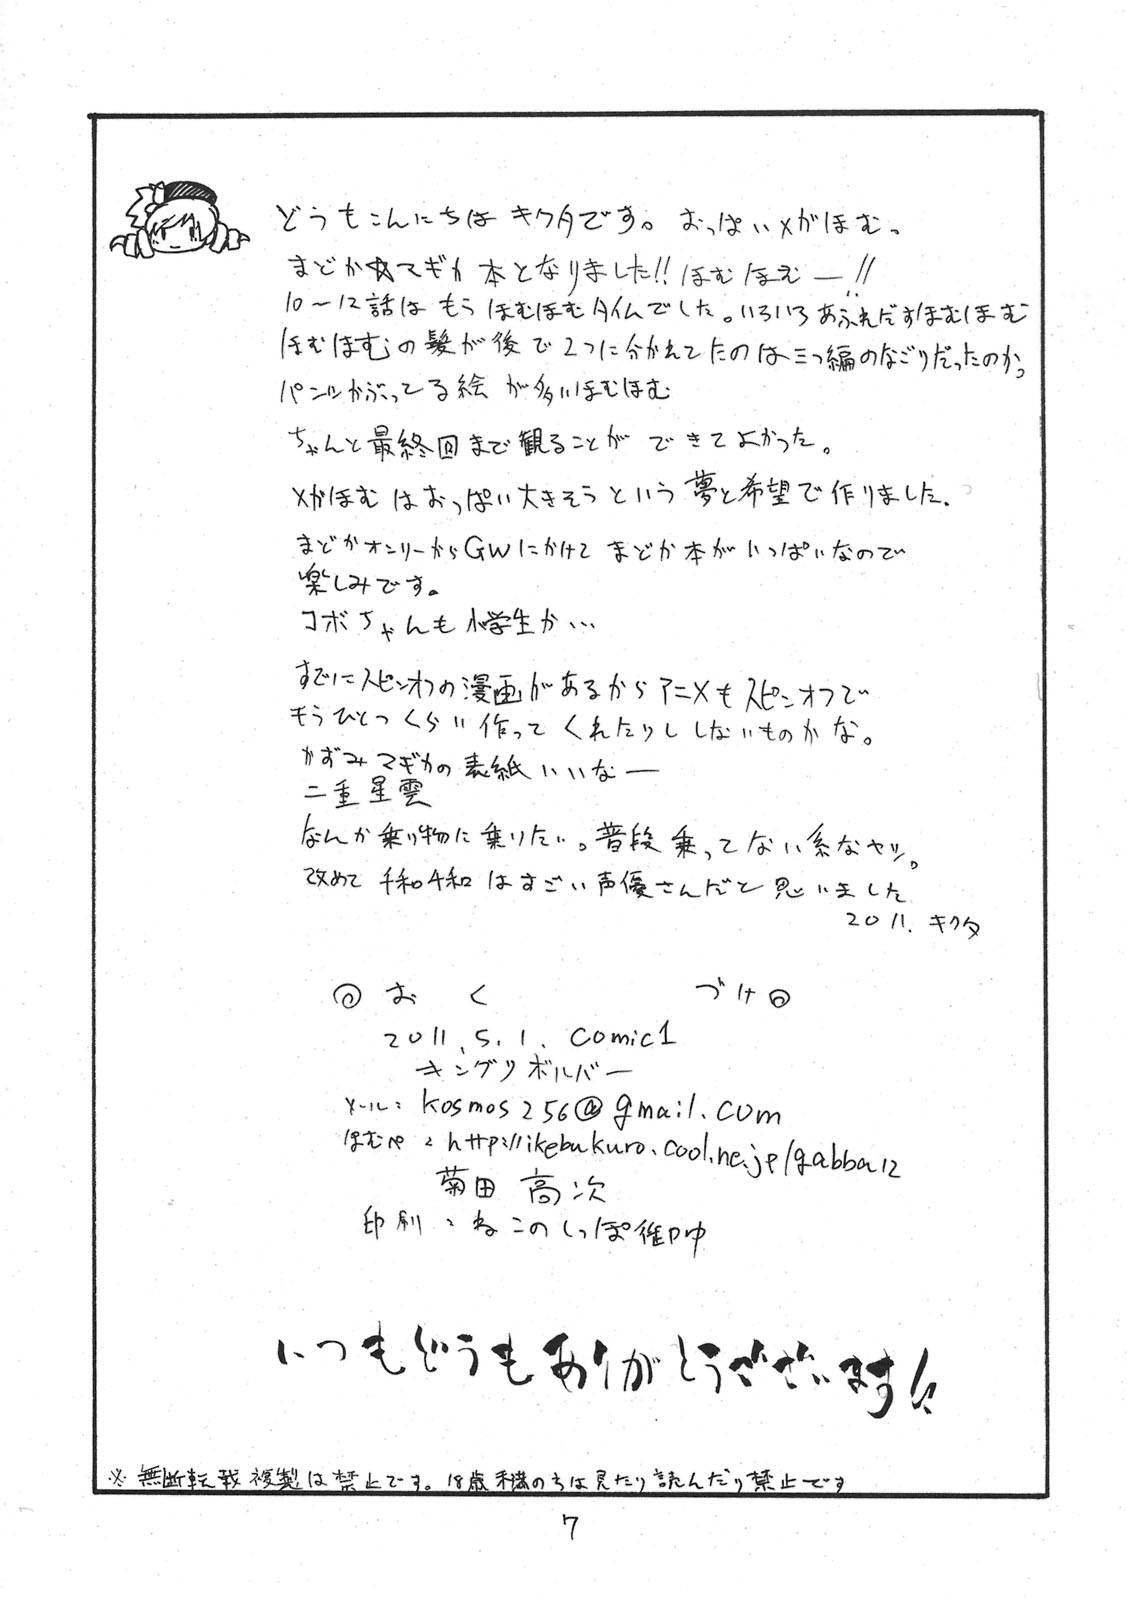 どうもこんにちは キクタです。 おっぱいメガほむっ
まどか☆マギカ 本となりました!! ほむほむー!!
10〜12話は もう ほむほむタイムでした。いろいろあふれだすほむほむ
ほむほむの髪が後で2つに分かれてたのは三つ編のなごりだったのかっ
パンツかぶってる絵 が多いほむほむ
ちゃんと最終回まで観ることが できてよかった。
メガほむ はおっぱい大きそうという夢と希望で作りました.
まどかオンリーからGWにかけて まどか本がいっぱいなので
楽しみです。
コボちゃんも小学生か…
すでにスピンオフの漫画があるからアニメもスピンオフで
もうひとつくらい作って くれたりししないものかな。
かずみマギカの表紙いいなー
二重星雲
なんか乗り物に乗りたい。普段乗ってない系なヤツ。
改めて 千和千和 はすごい声優さんだと思いました
2011. キクタ
◎ お く づけ◎
2011.5.1. comic1
キングリボルバー
メール: kosmos256@gmail.com
ほむぺ:http://ikebukuro.cool.ne.jp/gabba12
菊田 高次
印刷:ねこのしっぽ御中
いつもどうもありがとうございます!!
※無断転載複製は禁止です。18歳未満のちは見たり読んだり禁止です
7